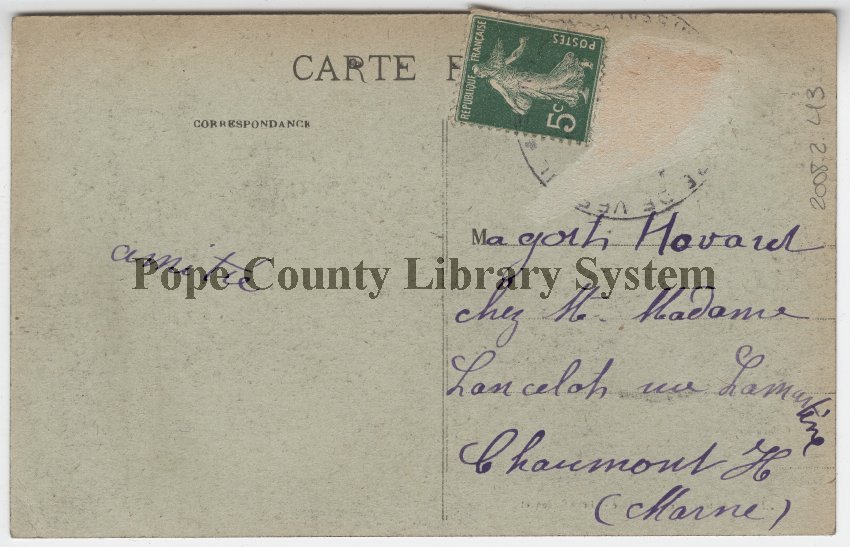 CARTE P
CORRESPONDANCE
REPUBLIQUE FRANÇAISE
POSTES
5c
2008.2.413
DE VE
amitié
Pope County Library System
Magosti Havard
chez M. Madame
Lancelot rue Lamartine
Chaumont H
(Marne)